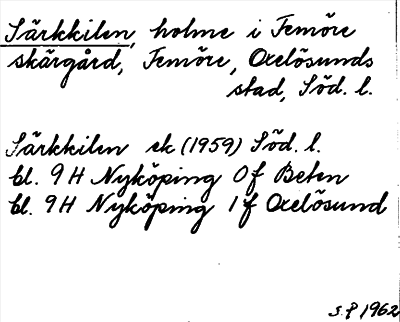 Särkkilen, holme i Femöre
skärgård, Femöre, Oxelösunds
stad, Söd. l.
Särkkilen ek (1959) Söd. l.
bl. 9 H Nyköping 0f Beten
bl. 9 H Nyköping 1f Oxelösund
S.P 1962